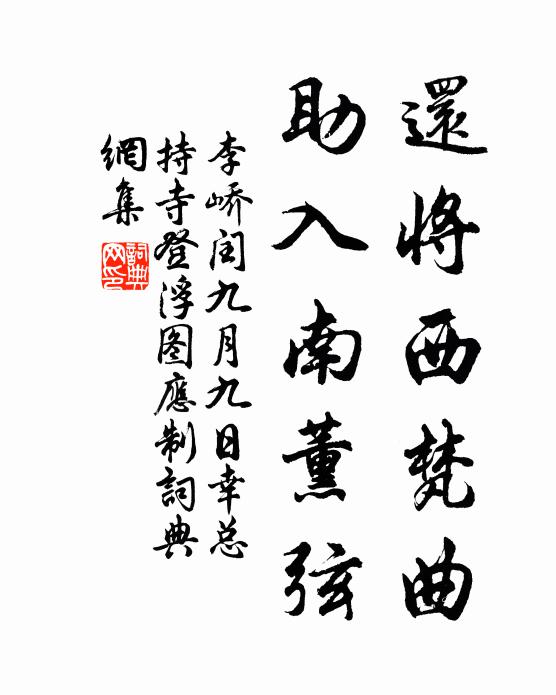 還將西梵曲
助入南薰弦
李峤闰九月九日幸总
持寺登浮图應制詞典
網集
詞典网印